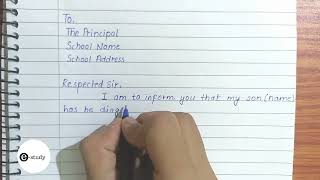 To,
The Principal
School Name
School Address
Respected Sir,
I am to inform you that my son (name)
has be ding
e-study